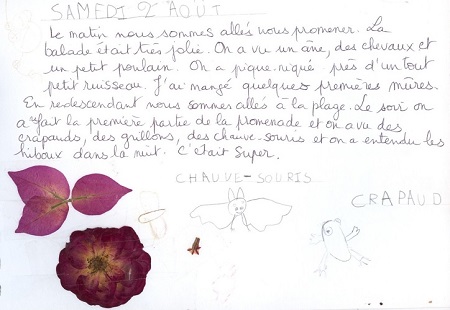 SAMEDI 2 AOÛT
Le matin nous sommes allés nous promener. La
balade était très jolie. On a vu un âne, des chevaux et
un petit poulain. On a pique-niqué près d'un tout
petit ruisseau. J'ai mangé quelques premières mûres.
En redescendant nous sommes allés à la plage. Le soir on
a refait la première partie de la promenade et on a vu des
crapauds, des grillons, des chauve-souris et on a entendu les
hiboux dans la nuit. C'était super.
CHAUVE-SOURIS
CRAPAUD